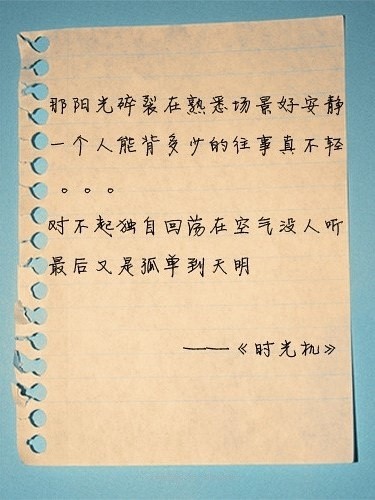 那阳光碎裂在熟悉场景好安静
一个人能背多少的往事真不轻
。。。
对不起独自回荡在空气没人听
最后又是孤单到天明
——《时光机》